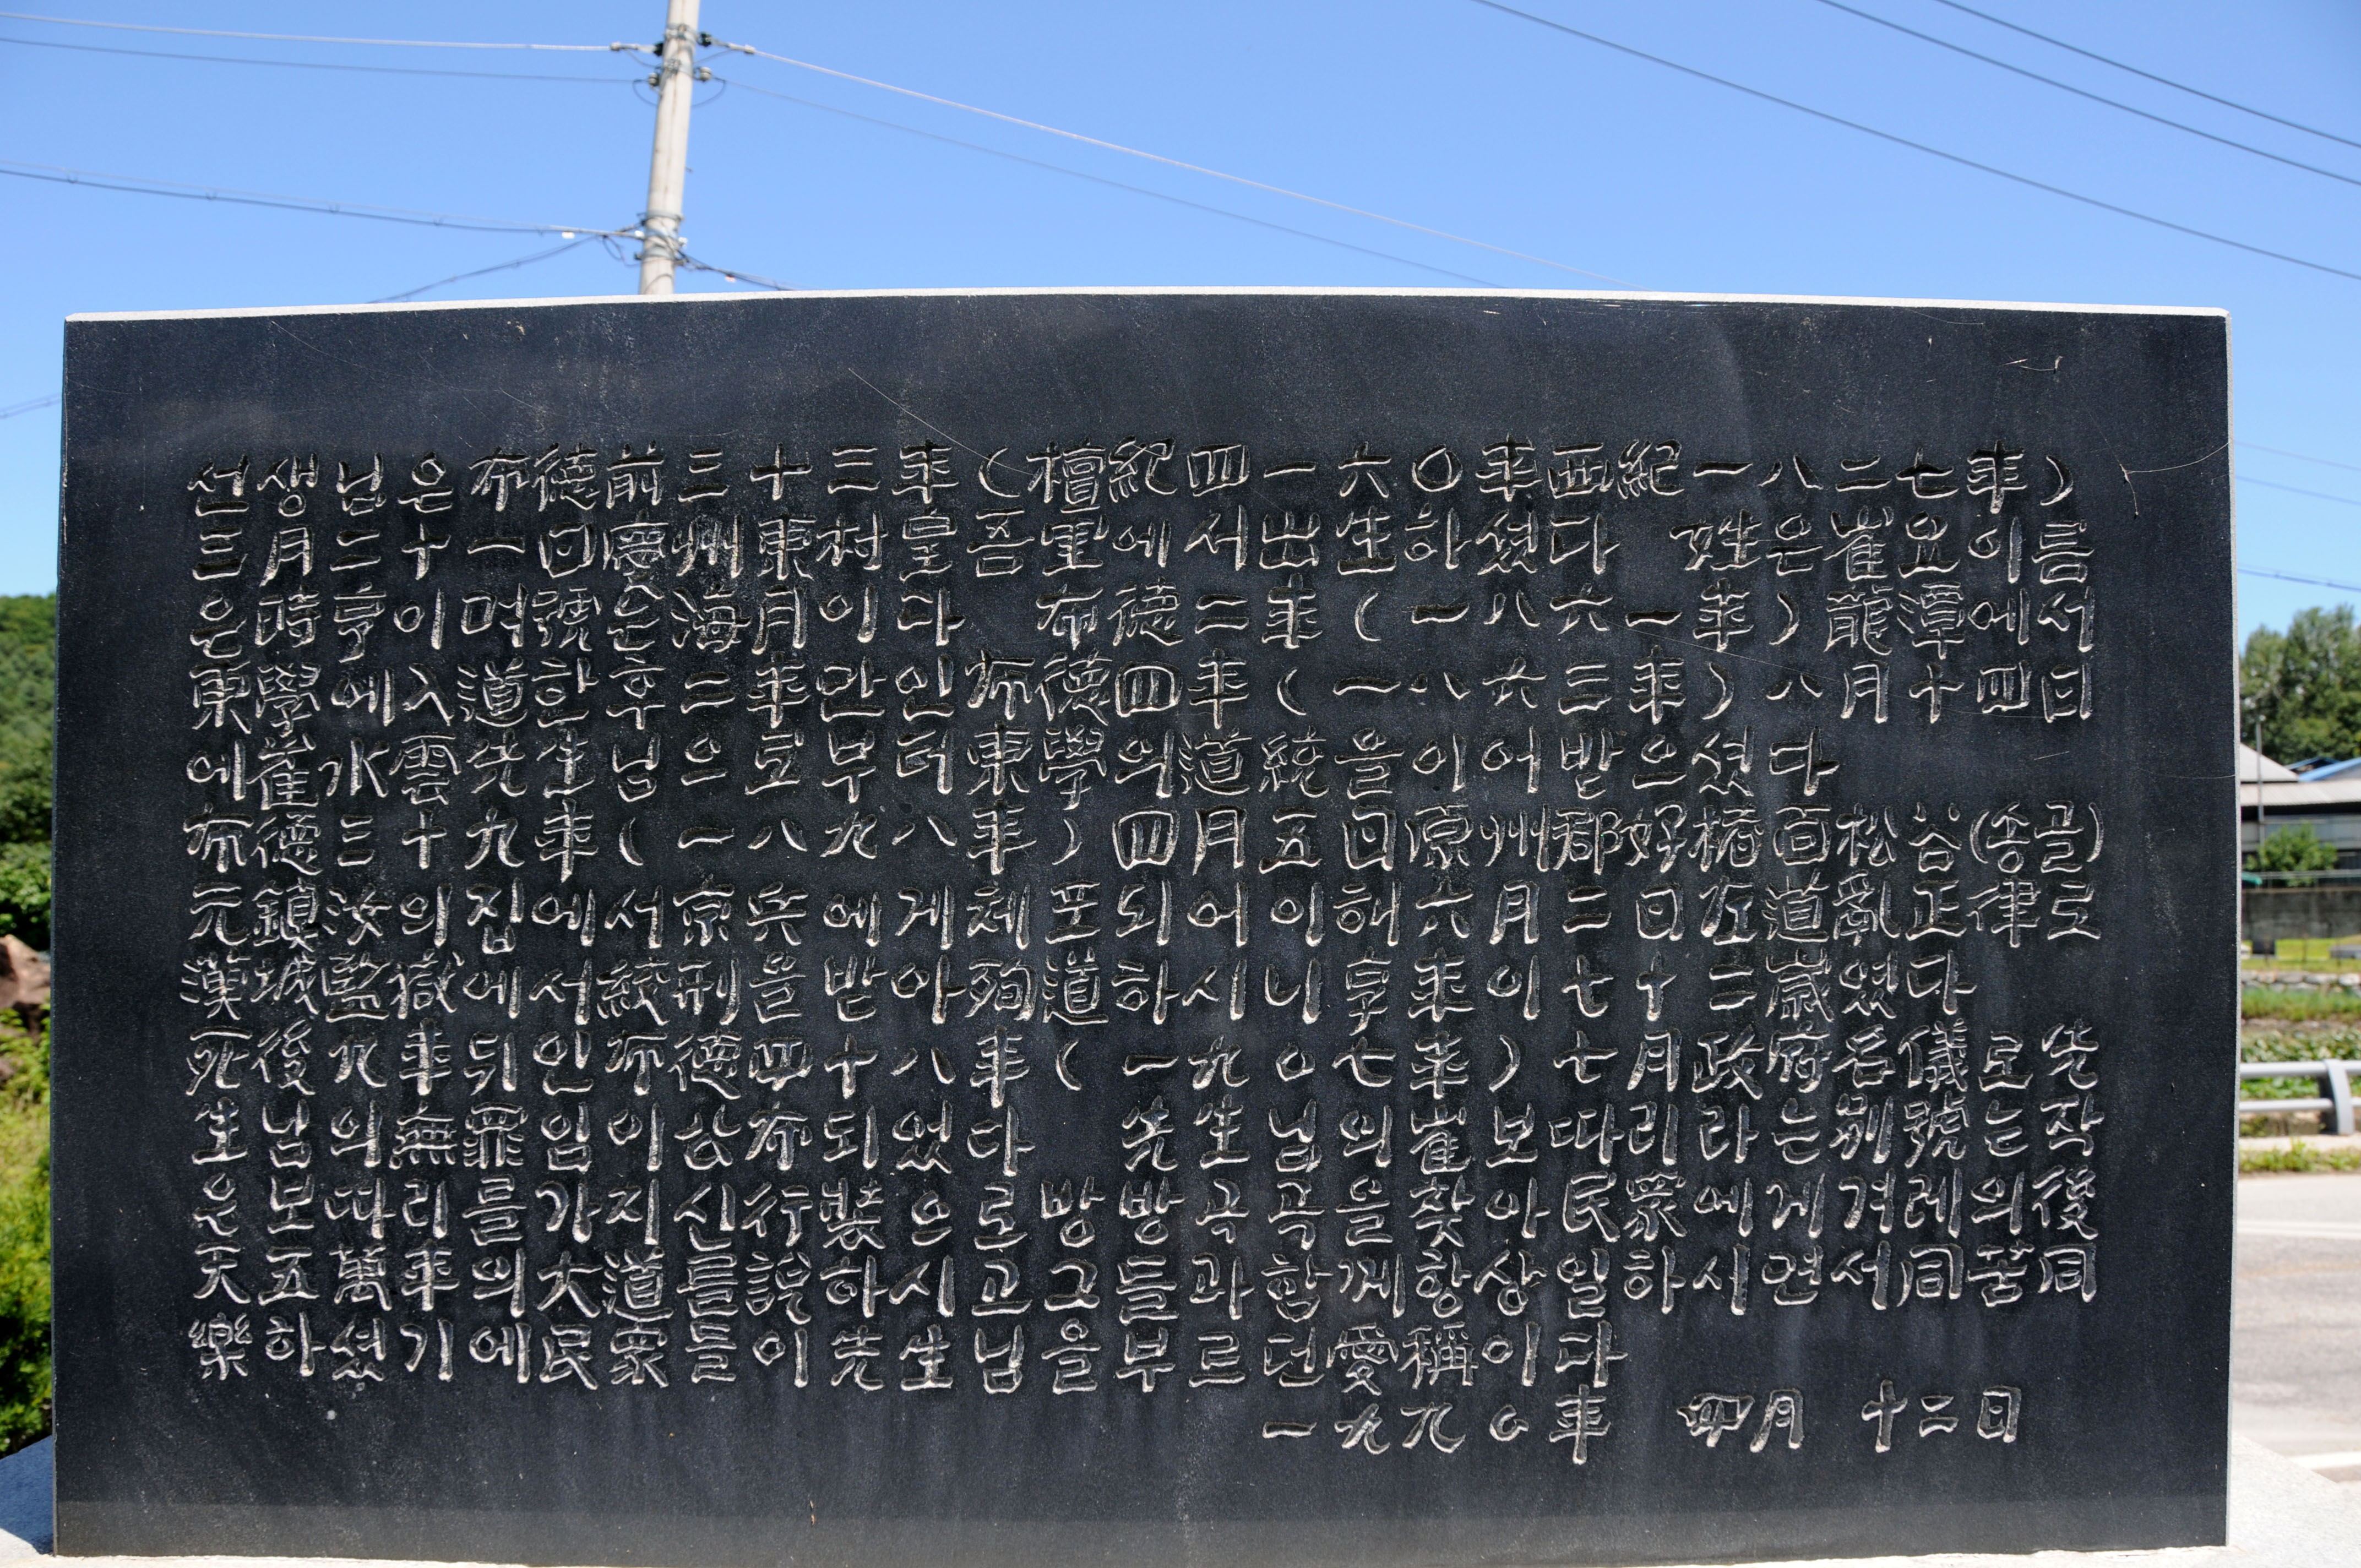 선생님은布德前三十三年(檀紀四一六〇年西紀一八二七年)
三月二十一日慶州東村皇吾里에서出生하셨다 姓은崔요이름
은時亨이며號은海月이다 布德二年(一八六一年)龍潭에서
東學에入道한후二年만인布德四年(一八六三年)八月十四日
에崔水雲先生님으로부터東學의道統을이어받으셨다
布德三十九年(一八九八年)四月五日原州郡好楮面松谷(송골)
元鎭汝의집에서京兵에게체포되어이해六月二日左道亂正律로
漢城監獄에서絞刑을받아殉道하시니享年이七十二歲였다
死後九年뒤인布德四十八年(一九〇七年)七月政府名儀로先
生님의無罪임이公布되었다 先生님의崔보따리라는別號는작
은보따리를가지신行裝으로방방곡곡을찾아民衆에게겨레의後
天五萬年의大道를說하시고그들과함께항상일하시면서同苦同
樂하셨기에民衆들이先生님을부르던愛稱이다
一九九〇年 四月 十二日